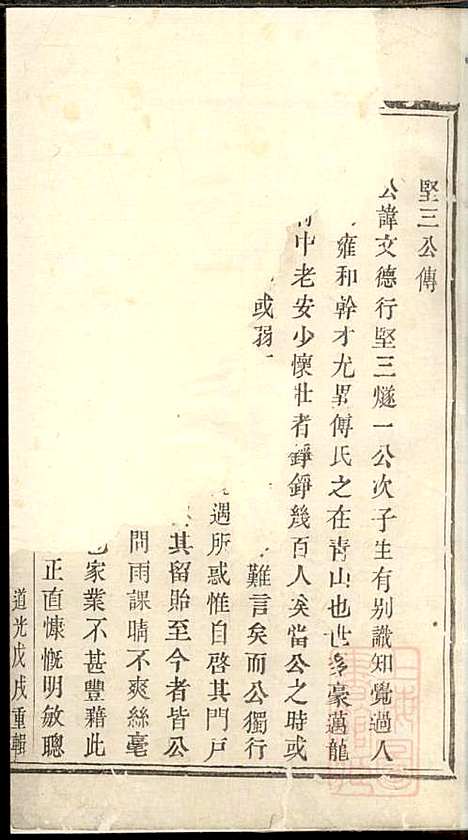 堅三公傳
公諱文德行堅三燧一公次子生有別識知覺過人
雍和幹才尤異傅氏之在靑山也世多豪邁龍
中老安少懷壯者錚錚幾百人矣當公之時或
或弱
難言矣而公獨行
遇所惑惟自啓其門戸
其留貽至今者皆公
問雨課晴不爽絲毫
家業不甚豐藉此
正直慷慨明敏聰
道光戊戌重輯